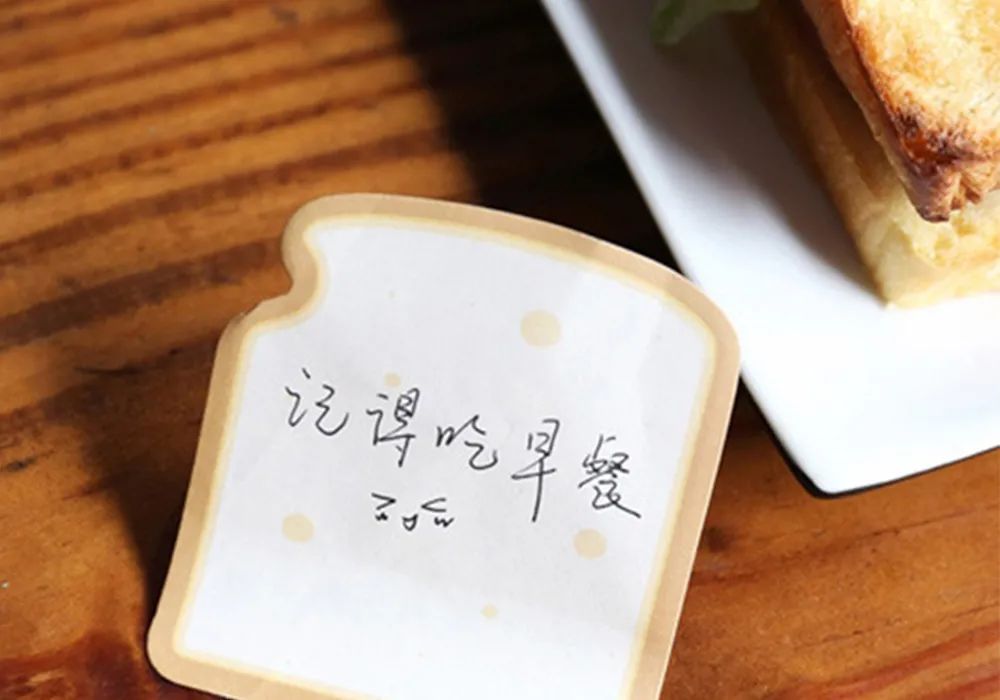 记得吃早餐